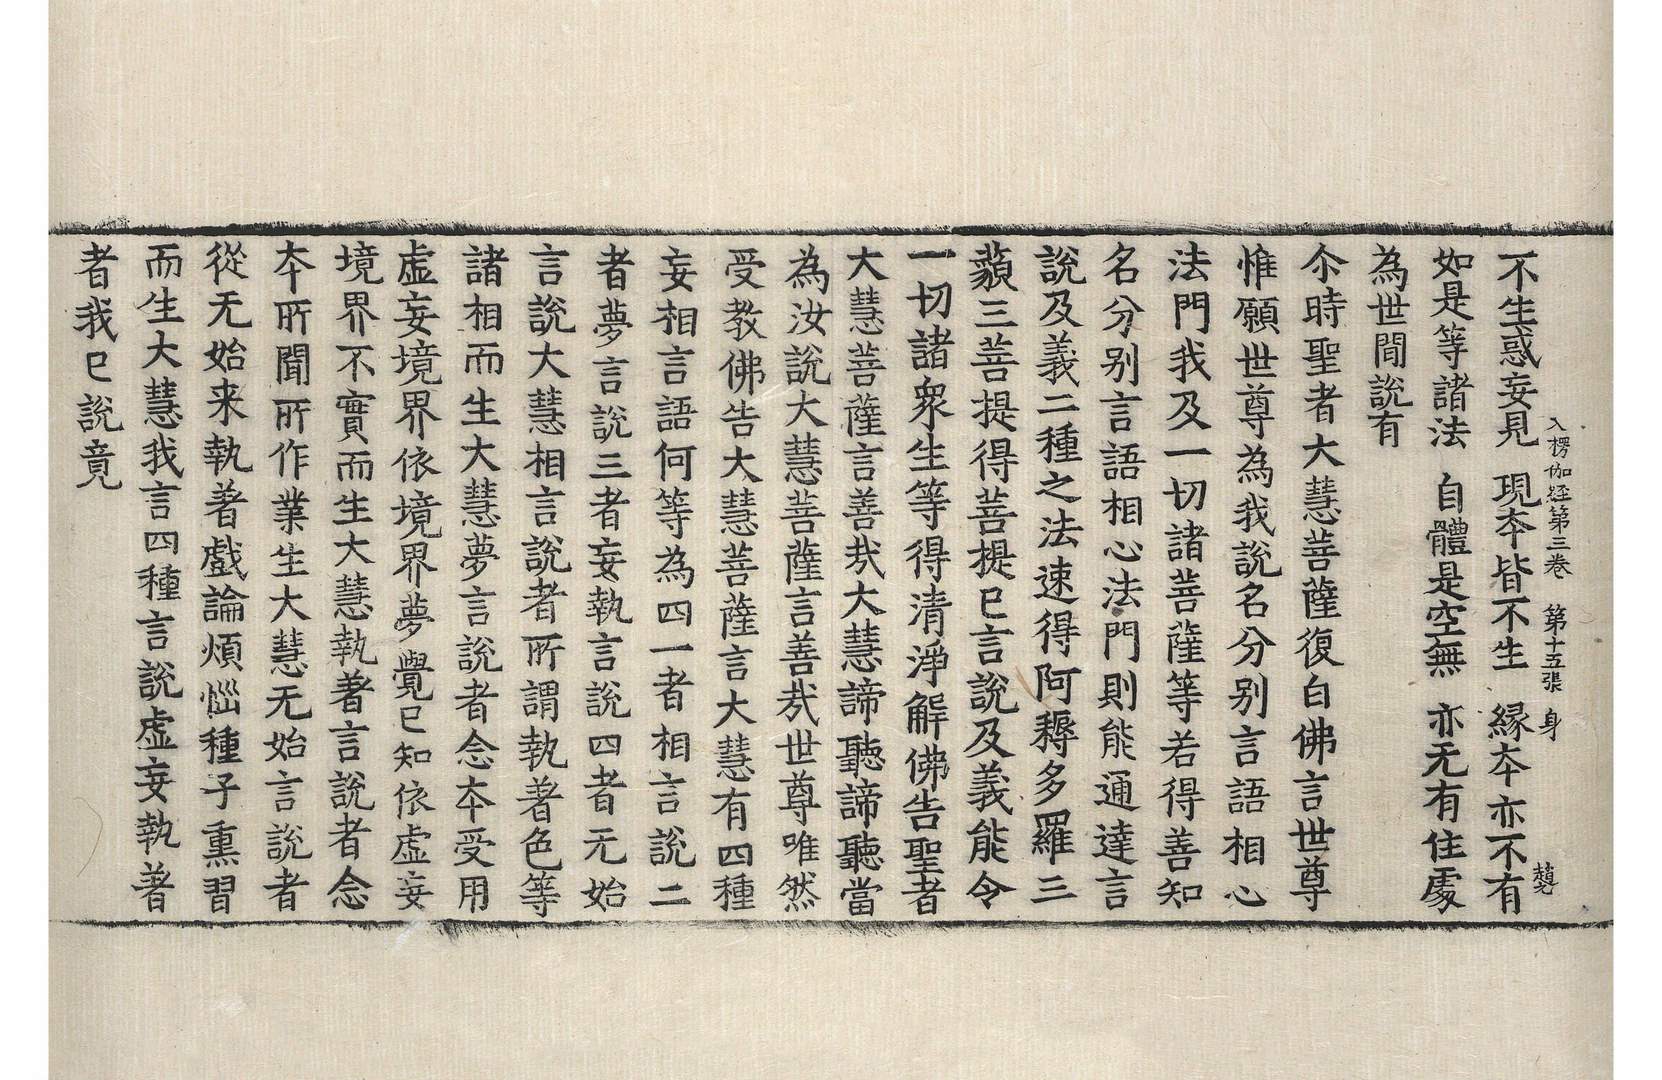 入楞伽経第三卷　第十五張　身　趙九
不生惑妄見　現夲皆不生　緣夲亦不有
如是等諸法　自體是空無　亦无有住䖏
為世間說有
尒時聖者大慧菩薩復白佛言世尊
惟願世尊為我說名分別言語相心
法門我及一切諸菩薩等若得善知
名分別言語相心法門則能通達言
說及義二種之法速得阿耨多羅三
藐三菩提得菩提已言說及義能令
一切諸衆生等得清淨解佛告聖者
大慧菩薩言善㢤大慧諦聽諦聽當
為汝說大慧菩薩言善㢤世尊唯然
受教佛告大慧菩薩言大慧有四種
妄相言語何等為四一者相言說二
者夢言說三者妄執言說四者无始
言說大慧相言說者所謂執著色等
諸相而生大慧夢言說者念夲受用
虛妄境界依境界夢覺已知依虛妄
境界不實而生大慧執著言說者念
夲所聞所作業生大慧无始言說者
從无始来執著戲論煩惱種子熏習
而生大慧我言四種言說虛妄執著
者我已說竟